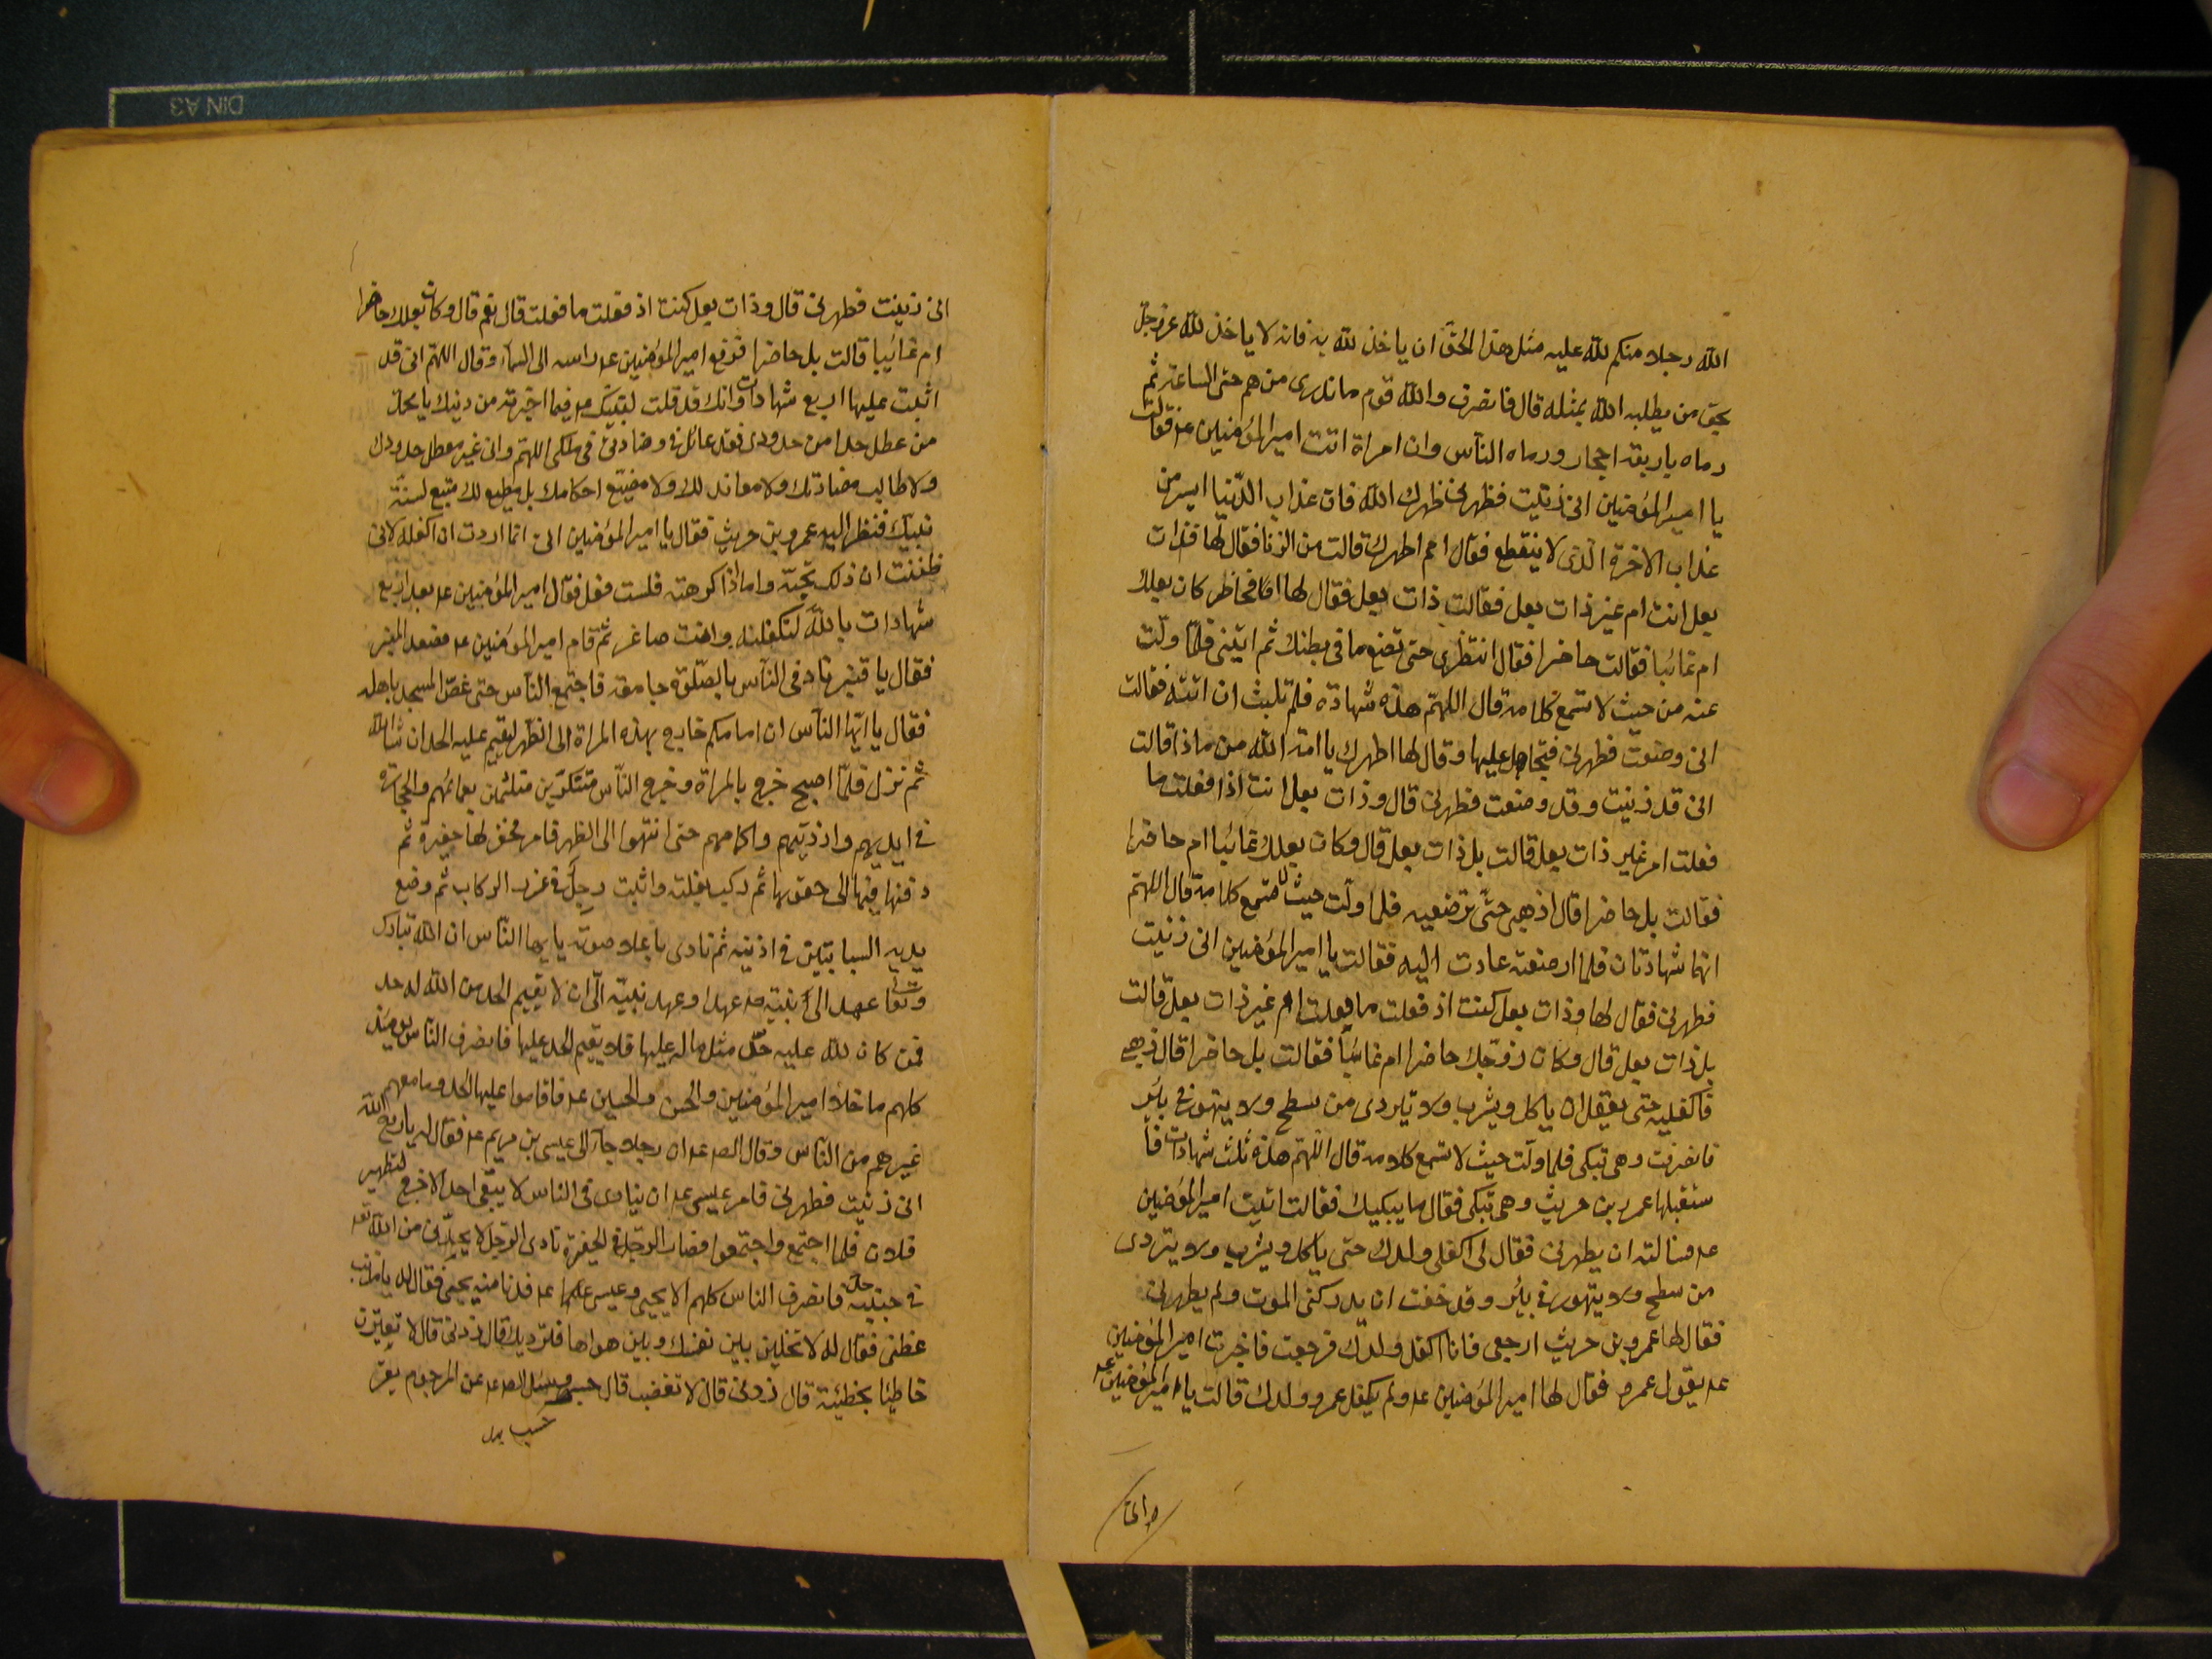 الله رجلا منكم لله عليه مثل هذا الحق ان ياخذ لله به فانه لا ياخذ لله عز وجل
بحق من يطلبه الله بمثله قال فانصرف والله قوم ما ندرى من هم حتى الساعة ثم
رماه باربعة احجار ورماه الناس وان امراة اتت امير المؤمنين عم فقالت
يا امير المؤمنين انى زنيت فطهرنى طهرك الله فان عذاب الدنيا ايسر من
عذاب الاخرة الذى لا ينقطع فقال مم اطهرك قالت من الزنا فقال لها فذات
بعل انت ام غير ذات بعل فقالت ذات بعل فقال لها افحاضر كان بعلك
ام غائبا فقالت حاضرا فقال انتظرى حتى تضع ما فى بطنك ثم ايتينى فلما ولت
عنه من حيث لا تسمع كلامه قال اللهم هذه شهادة فلم تلبث ان اتته فقالت
انى وضعت فطهرنى فتجاهل عليها وقال لها اطهرك يا امة الله من ماذا قالت
انى قد زنيت وقد وضعت فطهرنى قال وذات بعل انت اذا فعلت ما
فعلت ام غير ذات بعل قالت بل ذات بعل قال وكان بعلك غائبا ام حاضرا
فقالت بل حاضرا قال اذهبى حتى ترضعيه فلما ولت حيث لا تسمع كلامه قال اللهم
انها شهادتان فلما ارضعته عادت اليه فقالت يا امير المؤمنين انى زنيت
فطهرنى فقال لها وذات بعل كنت اذ فعلت ما فعلت ام غير ذات بعل قالت
بل ذات بعل قال وكان زوجك حاضرا ام غائبا فقالت بل حاضرا قال اذهبى
فاكفليه حتى يعقل ان ياكل ويشرب ولا يتردى من سطح ولا يتهور فى بئر
فانصرفت وهى تبكى فلما ولت حيث لا تسمع كلامه قال اللهم هذه ثلث شهادات فا
ستقبلها عمرو بن حريث وهى تبكى فقال ما يبكيك فقالت اتيت امير المؤمنين
عم فسالته ان يطهرنى فقال لى اكفلى ولدك حتى ياكل ويشرب ولا يتردى
من سطح ولا يتهور فى بئر وقد خفت ان يدركنى الموت ولم يطهرنى
فقال لها عمرو بن حريث ارجعى فانا اكفل ولدك فرجعت فاخبرت امير المؤمنين
عم بقول عمرو فقال لها امير المؤمنين عم ولم يكفل عمرو ولدك قالت يا امير المؤمنين عم
انى زنيت فطهرنى قال وذات بعل كنت اذ فعلت ما فعلت قال نعم قال وكان بعلك حاضرا
ام غائبا قالت بل حاضرا فرفع امير المؤمنين عم راسه الى السماء وقال اللهم انى قد
اثبت عليها اربع شهادات وانك قد قلت لنبيك عم فيما اخبرته من دينك يا محمد
من عطل حدا من حدودى فقد عاندنى وضادنى فى ملكى اللهم وانى غير معطل حدودك
ولا طالب مضادتك ولا معاند لك ولا مضيع احكامك بل مطيع لك متبع لسنة
نبيك فنظر اليه عمرو بن حريث فقال يا امير المؤمنين انى انما اردت ان اكفله لانى
ظننت ان ذلك تحبه واما اذا كرهته فلست افعل فقال امير المؤمنين عم بعد اربع
شهادات بالله لتكفلنه وانت صاغر ثم قام امير المؤمنين عم فصعد المنبر
فقال يا قنبر ناد فى الناس بالصلوة جامعة فاجتمع الناس حتى غص المسجد باهله
فقال يا ايها الناس ان امامكم خارج بهذه المراة الى الظهر ليقيم عليه الحد ان شاء الله
ثم نزل فلما اصبح خرج بالمراة وخرج الناس متنكرين متلثمين بعمائمهم والحجارة
فى ايديهم وارديتهم واكمامهم حتى انتهوا الى الظهر فامر فحفر لها حفيرة ثم
دفنها فيها الى حقويها ثم ركب بغلته واثبت رجله فى غرز الركاب ثم وضع
يديه السبابتين فى اذنيه ثم نادى باعلا صوته يا ايها الناس ان الله تبارك
وتعالى عهد الى نبيه عهدا وعهد نبيه الى ان لا يقيم الحد من الله له حد
فمن كان لله عليه حد مثل ما له عليها فلا يقيم الحد عليها فانصرف الناس يومئذ
كلهم ما خلا امير المؤمنين والحسن والحسين عم فاقاموا عليها الحد وما معهم
غيرهم من الناس وقال الصادق عم ان رجلا جاء الى عيسى بن مريم عم فقال له يا روح الله
انى زنيت فطهرنى فامر عيسى عم ان ينادى فى الناس لا يبقى احد الا خرج لتطهير
فلان فلما اجتمع واجتمعوا فصار الرجل فى الحفرة نادى الرجل لا يحدنى من الله تعالى
فى جنبه حد فانصرف الناس كلهم الا يحيى وعيسى عليهما عم فدنا منه يحيى فقال له يا مذنب
عظنى فقال له لا تخلين بين نفسك وبين هواها فترديك قال زدنى قال لا تعيرن
خاطئا بخطيئة قال زدنى قال لا تغضب قال حسبى وسئل الصادق عم عن المرجوم يفر